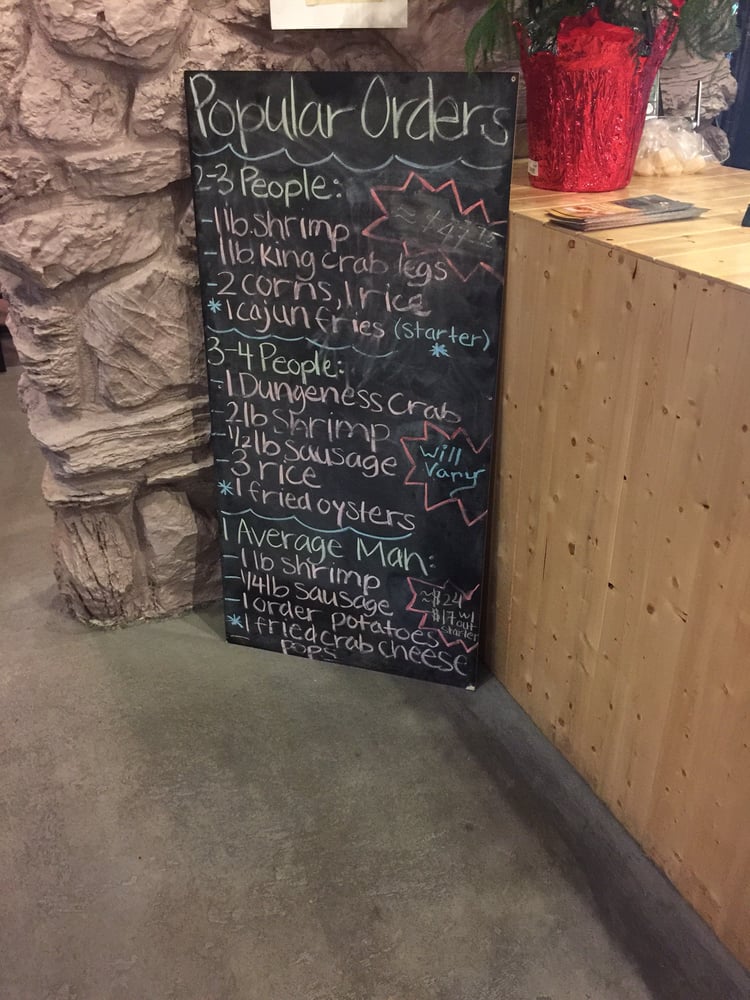 Popular Orders
2-3 People:
- 1 lb. shrimp
- 1 lb king crab legs
- 2 corns, 1 rice
* 1 cajun fries (starter)
*
3-4 People:
- 1 Dungeness Crab
- 2 lb shrimp
- 1/2 lb sausage
- 3 rice
* 1 fried oysters
will
vary
1 Average Man:
- 1 lb shrimp
- 1/4 lb sausage
- 1 order potatoes
* 1 fried crab cheese
pops
≈$24
$17 w/
out
starter